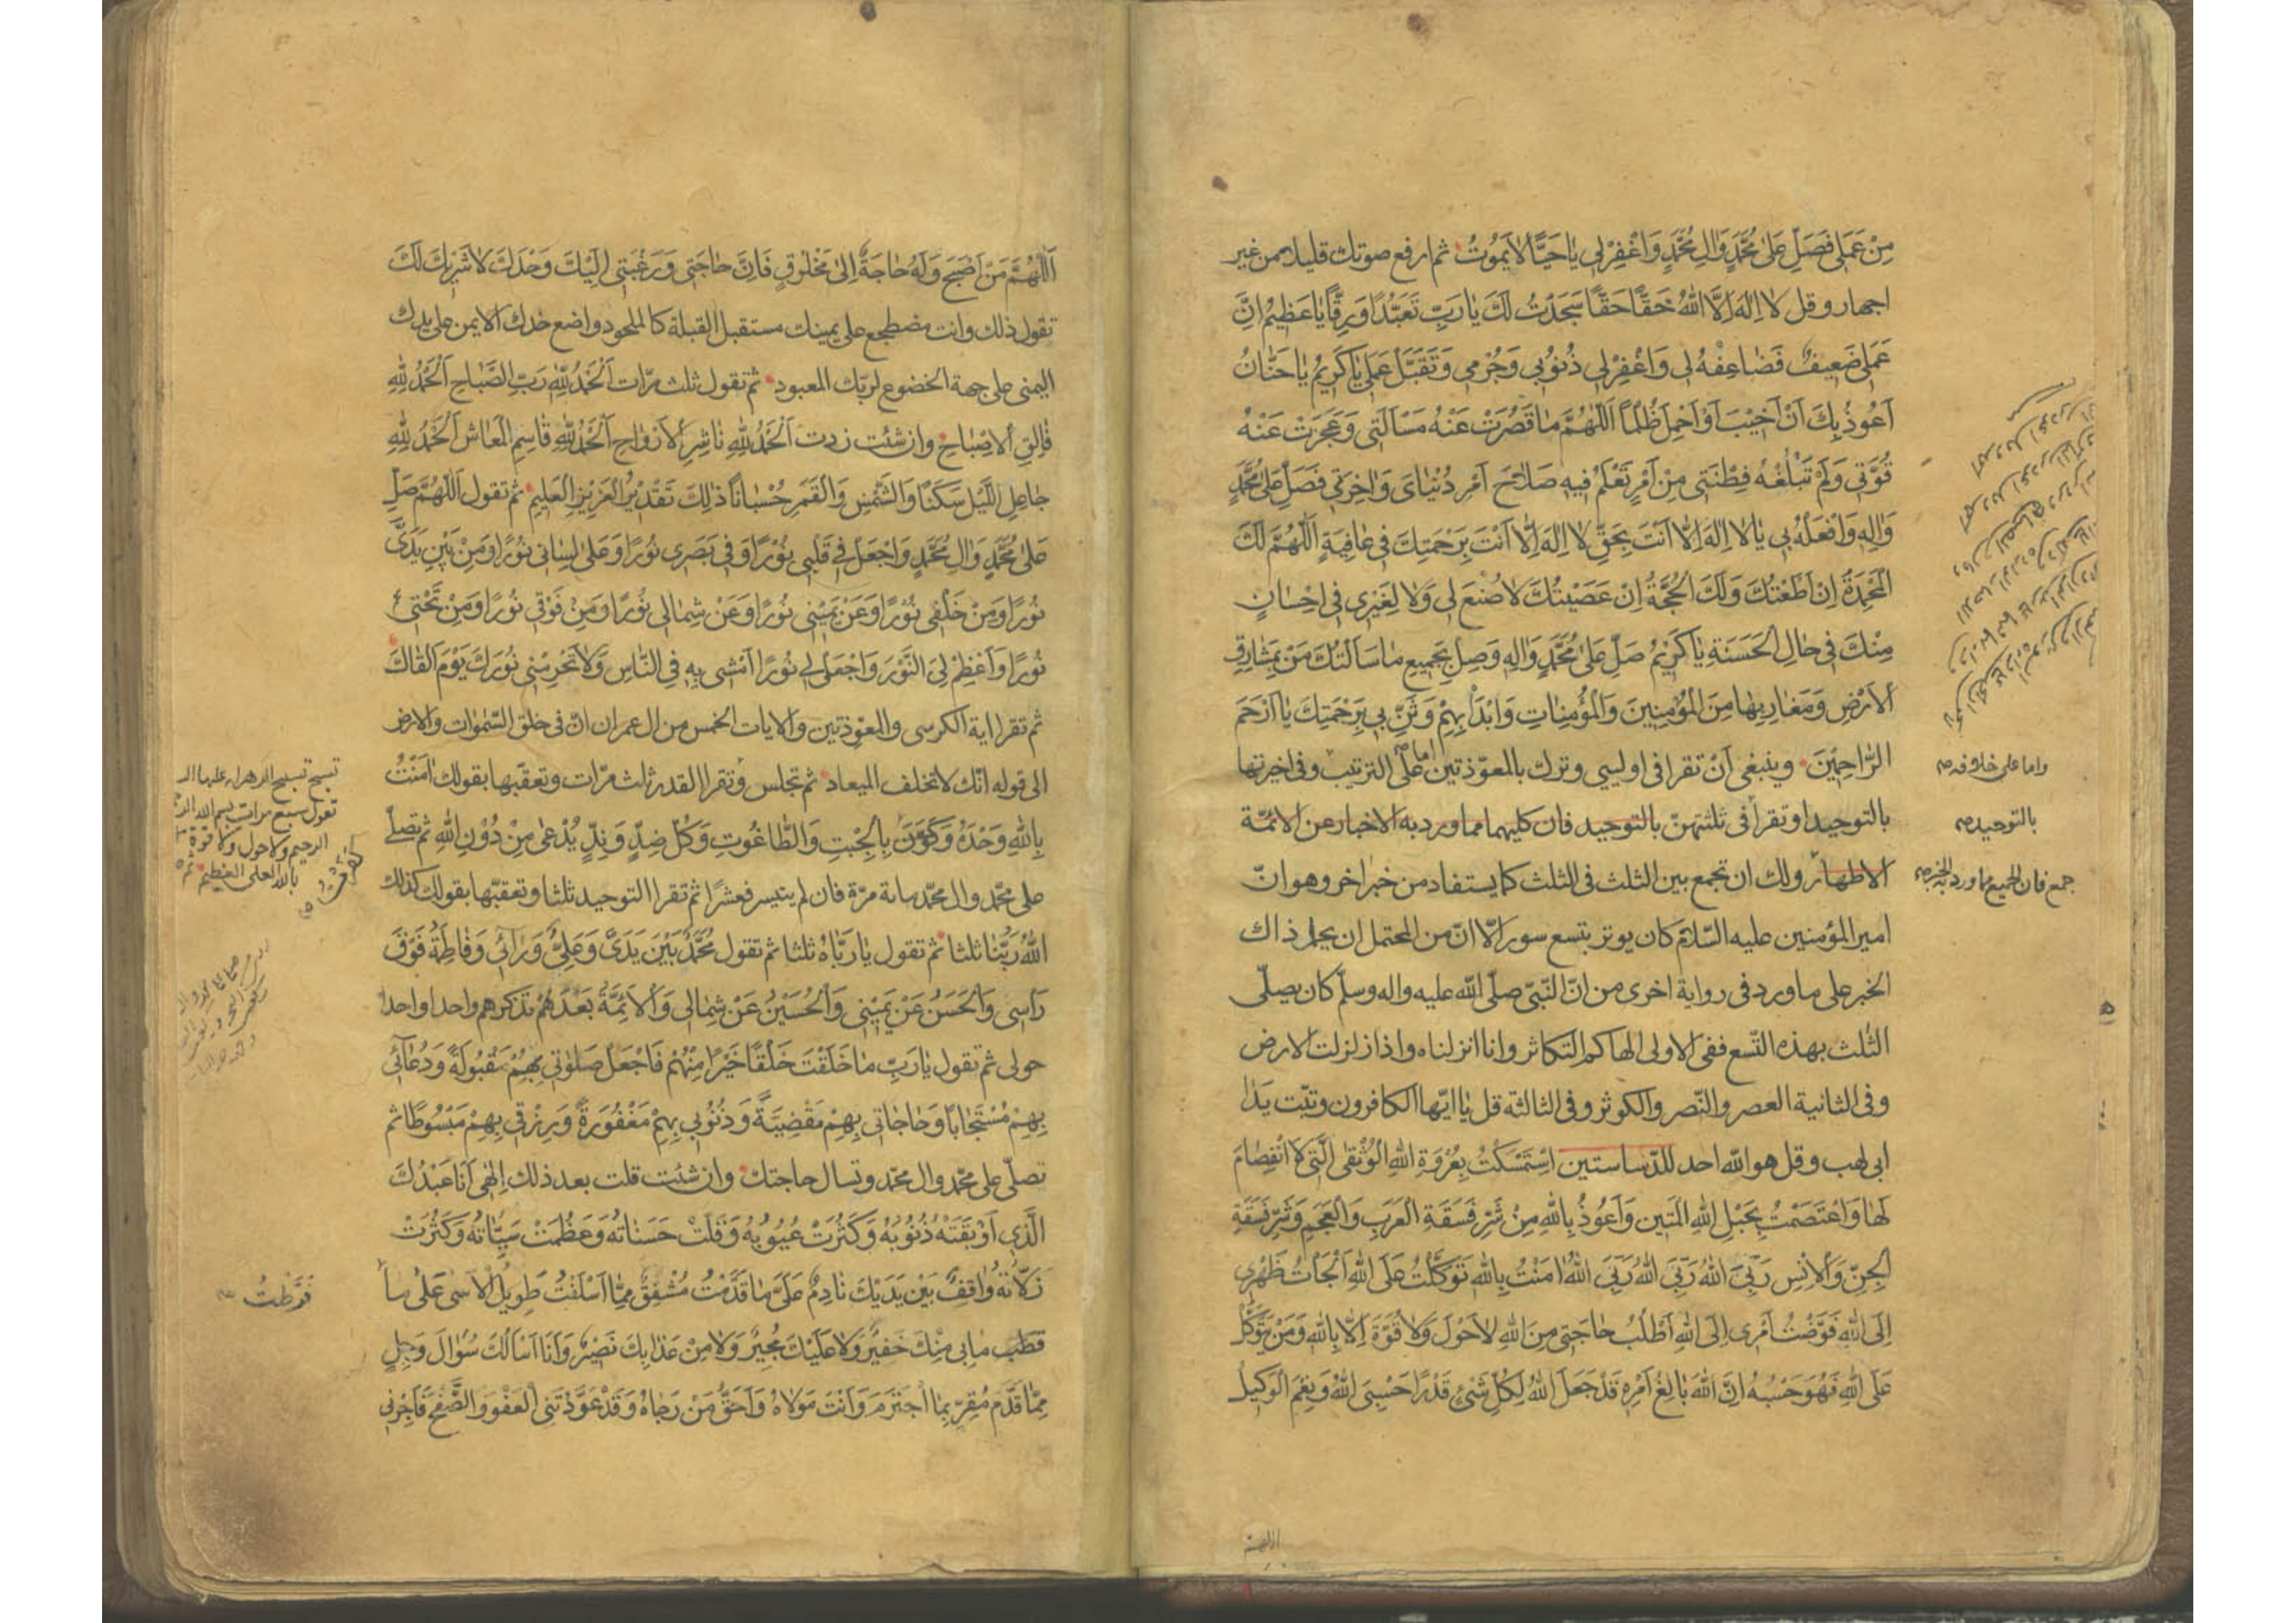 مِنْ عَمَلي فَصَلِّ عَلىٰ مُحَمَّدٍ وَالِ مُحَمَّدٍ وَاغْفِرْلي يٰا حَيًّا لاٰ يَمُوتُ ثم ارفع صوتك قليلا من غير
اجهار وقل لاٰ اِلٰهَ اِلَّا اللهُ حَقًّا حَقًّا سَجَدْتُ لَكَ يٰا رَبِّ تَعَبُّدًا وَرِقًّا يٰا عَظيمُ اِنَّ
عَمَلي ضَعيفٌ فَضٰاعِفْهُ لي وَاغْفِرْلي ذُنُوبي وَجُرْمي وَتَقَبَّلْ عَمَلي يٰا كَريمُ يٰا حَنّٰانُ
اَعُوذُ بِكَ اَنْ اَخيبَ اَوْ اَحْمِلَ ظُلْمًا اَللّٰهُمَّ مٰا قَصُرَتْ عَنْهُ مَسْاَلَتي وَعَجَزَتْ عَنْهُ
قُوَّتي وَلَمْ تَبْلُغْهُ فِطْنَتي مِنْ اَمْرٍ تَعْلَمُ فيهِ صَلاٰحَ اَمْرِ دُنْيٰايَ وَاٰخِرَتي فَصَلِّ عَلىٰ مُحَمَّدٍ
وَالِهِ وَافْعَلْهُ بي يٰا لاٰ اِلٰهَ اِلّٰا اَنْتَ بِحَقِّ لاٰ اِلٰهَ اِلّٰا اَنْتَ بِرَحْمَتِكَ في عٰافِيَةٍ اَللّٰهُمَّ لَكَ
الْمَحْمِدَةُ اِنْ اَطَعْتُكَ وَلَكَ الْحُجَّةُ اِنْ عَصَيْتُكَ لاٰ صُنْعَ لي وَلاٰ لِغَيْري في اِحْسٰانٍ
مِنْكَ في حٰالِ الْحَسَنَةِ يٰا كَريمُ صَلِّ عَلىٰ مُحَمَّدٍ وَالِهِ وَصِلْ بِجَميعِ مٰا سَاَلْتُكَ مَنْ بِمَشٰارِقِ
الْاَرْضِ وَمَغٰارِبِهٰا مِنَ الْمُؤْمِنينَ وَالْمُؤْمِنٰاتِ وَابْدَأْ بِهِمْ وَثَنِّ بي بِرَحْمَتِكَ يٰا اَرْحَمَ
الرّٰاحِمينَ وينبغى اَنْ تقرا فى اوليى وترك بالمعوّذتين اما على الترتيب وفى اخيرتها
بالتوحيد او تقرا فى ثلثتهنّ بالتوحيد فان كليهما مما ورد به الاخبار عن الائمّة
الاطهار ولك ان تجمع بين الثلث فى الثلث كما يستفاد من خبر اخر وهو انّ
امير المؤمنين عليه السّلام كان يوتر بتسع سور الّا انّ من المحتمل ان يحمل ذاك
الخبر على ما ورد فى رواية اخرى من انّ النّبىّ صلّى الله عليه واله وسلّم كان يصلّى
الثلث بهذه التّسع ففى الاولى الهاكم التكاثر وانا انزلناه واذا زلزلت الارض
وفى الثانية العصر والنّصر والكوثر وفى الثالثة قل يا ايّها الكافرون وتبّت يدا
ابى لهب وقل هو الله احد اِسْتَمْسَكْتُ بِعُرْوَةِ اللهِ الْوُثْقىٰ الَّتي لاَ انْفِصٰامَ
لَهٰا وَاعْتَصَمْتُ بِحَبْلِ اللهِ الْمَتينِ وَاَعُوذُ بِاللهِ مِنْ شَرِّ فَسَقَةِ الْعَرَبِ وَالْعَجَمِ وَشَرِّ فَسَقَةِ
الْجِنِّ وَالْاِنْسِ رَبِّيَ اللهُ رَبِّيَ اللهُ رَبِّيَ اللهُ اٰمَنْتُ بِاللهِ تَوَكَّلْتُ عَلَى اللهِ اَلْجَأْتُ ظَهْري
اِلَى اللهِ فَوَّضْتُ اَمْري اِلَى اللهِ اَطْلُبُ حٰاجَتي مِنَ اللهِ لاٰ حَوْلَ وَلاٰ قُوَّةَ اِلّٰا بِاللهِ وَمَنْ يَتَوَكَّلْ
عَلَى اللهِ فَهُوَ حَسْبُهُ اِنَّ اللهَ بٰالِغُ اَمْرِهِ قَدْ جَعَلَ اللهُ لِكُلِّ شَىْءٍ قَدْرًا حَسْبِيَ اللهُ وَنِعْمَ الْوَكيلُ
اللهمّ
واما على خلافه
بالتوحيد
جمع فان الجميع مما ورد به الخبر
اَللّٰهُمَّ مَنْ اَصْبَحَ وَلَهُ حٰاجَةٌ اِلىٰ مَخْلُوقٍ فَاِنَّ حٰاجَتي وَرَغْبَتي اِلَيْكَ وَحْدَكَ لاٰ شَريكَ لَكَ
تقول ذلك وانت مضطجع على يمينك مستقبل القبلة كالملحود واضع خدك الايمن على يدك
اليمنى على جهة الخضوع لربّك المعبود ثم تقول ثلث مرّات اَلْحَمْدُ لِلّٰهِ رَبِّ الصَّبٰاحِ اَلْحَمْدُ لِلّٰهِ
فٰالِقِ الْاِصْبٰاحِ وان شئت زدت اَلْحَمْدُ لِلّٰهِ نٰاشِرِ الْاَرْوٰاحِ اَلْحَمْدُ لِلّٰهِ قٰاسِمِ الْمَعٰاشِ اَلْحَمْدُ لِلّٰهِ
جٰاعِلِ اللَّيْلِ سَكَنًا وَالشَّمْسِ وَالْقَمَرِ حُسْبٰانًا ذٰلِكَ تَقْديرُ الْعَزيزِ الْعَليمِ ثم تقول اَللّٰهُمَّ صَلِّ
عَلىٰ مُحَمَّدٍ وَالِ مُحَمَّدٍ وَاجْعَلْ في قَلْبي نُورًا وَفي بَصَري نُورًا وَعَلىٰ لِسٰاني نُورًا وَمِنْ بَيْنِ يَدَيَّ
نُورًا وَمِنْ خَلْفي نُورًا وَعَنْ يَميني نُورًا وَعَنْ شِمٰالي نُورًا وَمِنْ فَوْقي نُورًا وَمِنْ تَحْتي
نُورًا وَاَعْظِمْ لِيَ النُّورَ وَاجْعَلْ لي نُورًا اَمْشي بِهِ فِي النّٰاسِ وَلاٰ تَحْرِمْني نُورَكَ يَوْمَ اَلْقٰاكَ
ثم تقرا اية الكرسى والمعوّذتين والايات الخمس من ال عمران انّ فى خلق السّموات والارض
الى قوله انّك لا تخلف الميعاد ثم تجلس وتقرا القدر ثلث مرّات وتعقّبها بقولك اٰمَنْتُ
بِاللهِ وَحْدَهُ وَكَفَرْتُ بِالْجِبْتِ وَالطّٰاغُوتِ وَكُلِّ ضِدٍّ وَنِدٍّ يُدْعىٰ مِنْ دُونِ اللهِ ثم تصلّى
على محمّد وال محمّد مائة مرّة فان لم يتيسر فعشرًا ثم تقرا التوحيد ثلثا وتعقّبها بقولك كذلك
اللهُ رَبُّنٰا ثلثا ثم تقول يٰا رَبّٰاهُ ثلثا ثم تقول مُحَمَّدٌ بَيْنَ يَدَيَّ وَعَلِيٌّ وَرٰائي وَفٰاطِمَةُ فَوْقَ
رَأْسي وَالْحَسَنُ عَنْ يَميني وَالْحُسَيْنُ عَنْ شِمٰالي وَالْاَئِمَّةُ بَعْدَهُمْ تذكرهم واحدا واحدا
حولى ثم تقول يٰا رَبِّ مٰا خَلَقْتَ خَلْقًا خَيْرًا مِنْهُمْ فَاجْعَلْ صَلٰوتي بِهِمْ مَقْبُولَةً وَدُعٰائي
بِهِمْ مُسْتَجٰابًا وَحٰاجٰاتي بِهِمْ مَقْضِيَّةً وَذُنُوبي بِهِمْ مَغْفُورَةً وَرِزْقي بِهِمْ مَبْسُوطًا ثم
تصلّى على محمّد وال محمّد وتسال حاجتك وان شئت قلت بعد ذلك اِلٰهي اَنَا عَبْدُكَ
الَّذي اَوْبَقَتْهُ ذُنُوبُهُ وَكَثُرَتْ عُيُوبُهُ وَقَلَّتْ حَسَنٰاتُهُ وَعَظُمَتْ سَيِّئٰاتُهُ وَكَثُرَتْ
زَلّٰاتُهُ وٰاقِفٌ بَيْنَ يَدَيْكَ نٰادِمٌ عَلىٰ مٰا قَدَّمْتُ مُشْفِقٌ مِمّٰا اَسْلَفْتُ طَويلُ الْاَسىٰ عَلىٰ مٰا
مٰا لي مِنْكَ خَفيرٌ وَلاٰ عَلَيْكَ مُجيرٌ وَلاٰ مِنْ عَذٰابِكَ نَصيرٌ وَاَنَا اَسْاَلُكَ سُؤٰالَ وَجِلٍ
مِمّٰا قَدَّمَ مُقِرٍّ بِمَا اجْتَرَمَ وَاَنْتَ مَوْلاٰهُ وَاَحَقُّ مَنْ رَجٰاهُ وَقَدْ عَوَّدْتَنِي الْعَفْوَ وَالصَّفْحَ فَاَجِرْني
تسبح تسبيح الزهراء عليها
تقول سبع مرات بسم الله
الرحيم ولا حول ولا قوة
بالله العلى العظيم ثم
كَفَرْتُ
فَرَّطْتُ